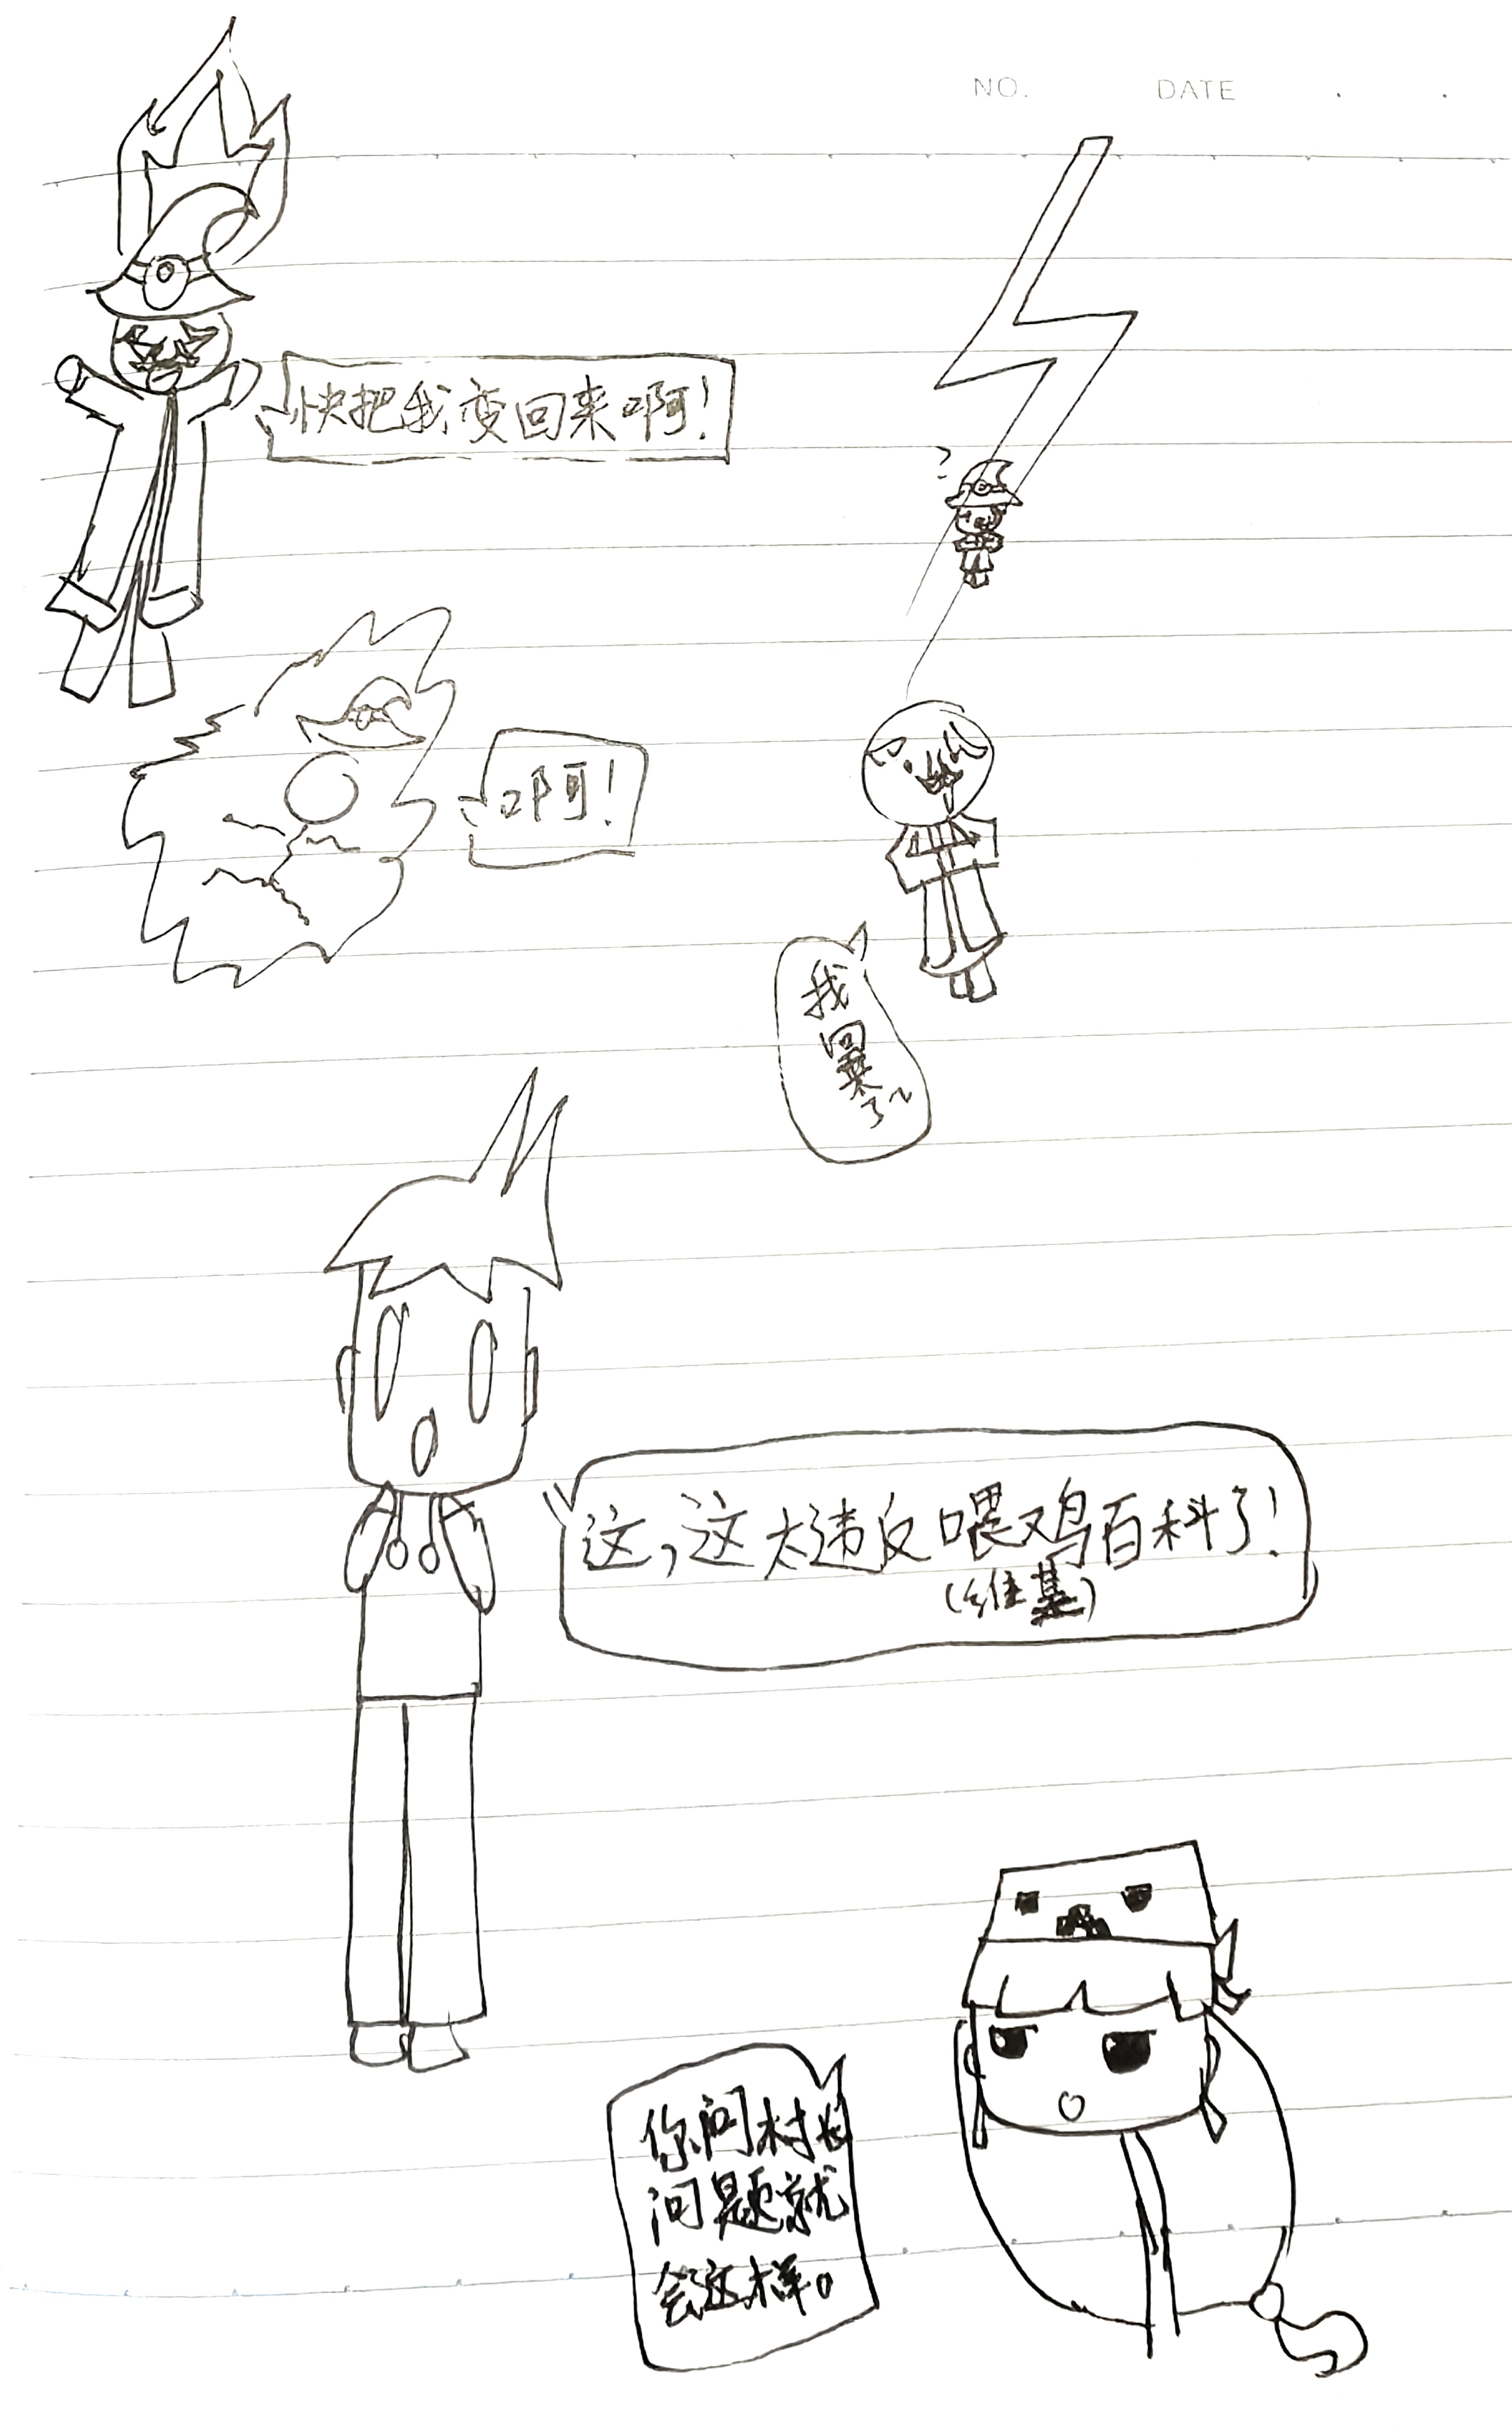 NO. DATE
快把我变回来啊!
?
啊!
我回来了~
这,这太违反喂鸡百科了!
(维基)
你问村长
问题就
会这样。